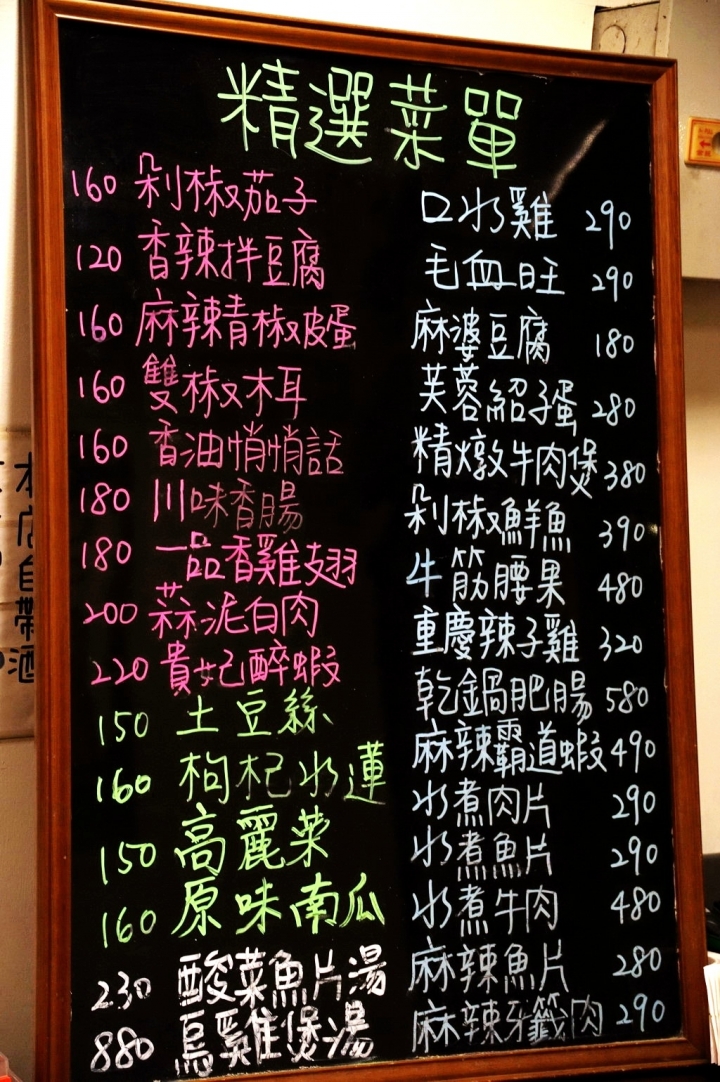 精選菜單
160 剁椒茄子
120 香辣拌豆腐
160 麻辣青椒皮蛋
160 雙椒木耳
160 香油悄悄話
180 川味香腸
180 一品香雞翅
200 蒜泥白肉
220 貴妃醉蝦
150 土豆絲
160 枸杞水蓮
150 高麗菜
160 原味南瓜
230 酸菜魚片湯
880 烏雞煲湯
口水雞 290
毛血旺 290
麻婆豆腐 180
芙蓉紹子蛋 280
精燉牛肉煲 380
剁椒鮮魚 390
牛筋腰果 480
重慶辣子雞 320
乾鍋肥腸 580
麻辣霸道蝦 490
水煮肉片 290
水煮魚片 290
水煮牛肉 480
麻辣魚片 280
麻辣牙籤肉 290
本店自帶酒